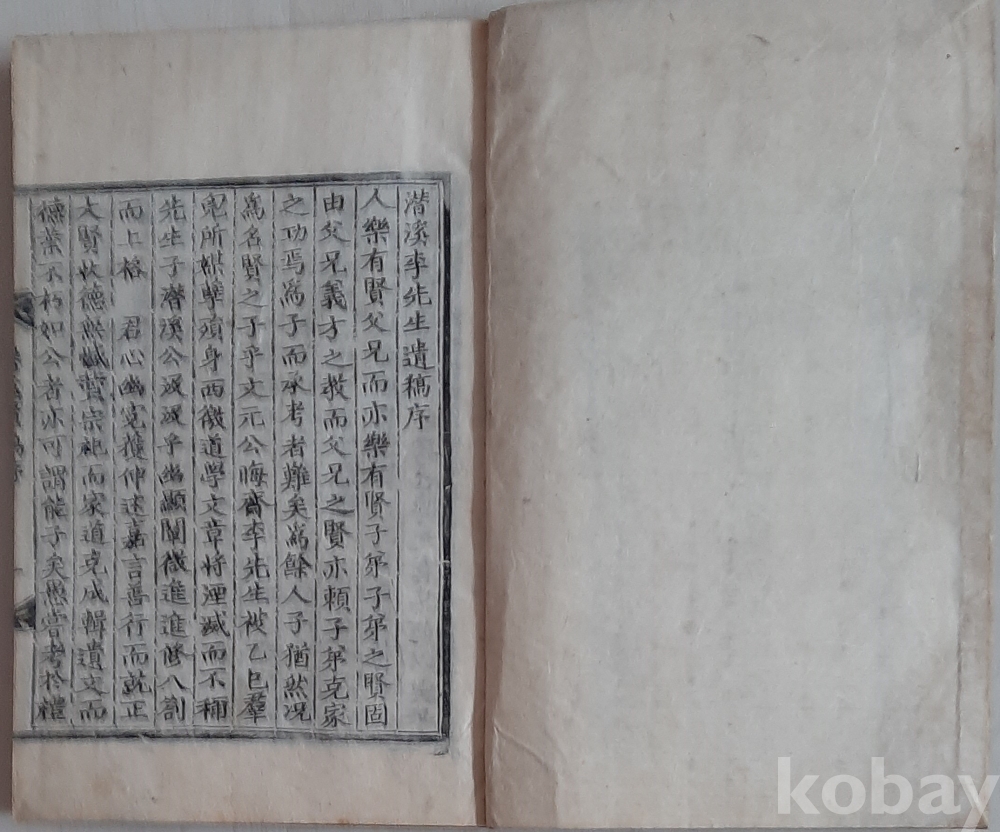 潛溪李先生遺稿序
人樂有賢父兄而亦樂有賢子弟子弟之賢固
由父兄義方之敎而父兄之賢亦賴子弟克家
之功焉爲子而承考者難矣爲餘人子猶然况
爲名賢之子乎文元公晦齋李先生被乙巳羣
兇所媒孼殞身西徼道學文章將湮滅而不稱
先生子潛溪公汲汲乎幽顯闡微進進修八劄
而上格 君心幽寃獲伸述嘉言善行而就正
大賢攸德 宗祀而家道克成輯遺文而
德業不朽如公者亦可謂能子矣愚嘗考於禮
kobay